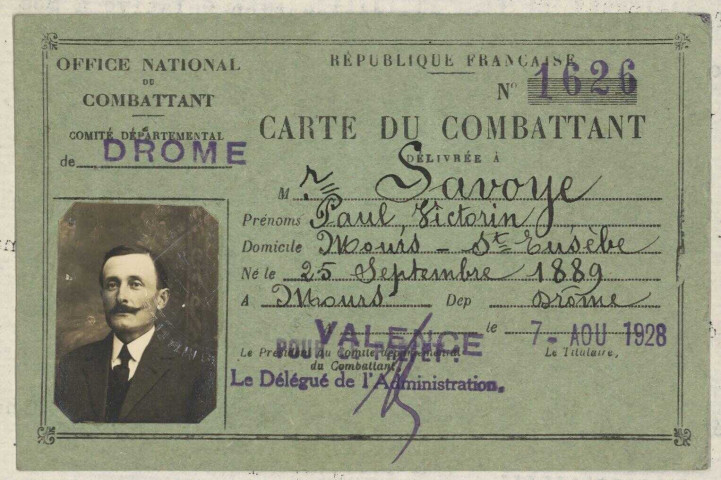 OFFICE NATIONAL
DU
COMBATTANT
COMITÉ DÉPARTEMENTAL
de DROME
RÉPUBLIQUE FRANÇAISE
N° 1626
CARTE DU COMBATTANT
DÉLIVRÉE À
M r Savoye
Prénoms Paul, Victorin
Domicile Mours - St Eusèbe
Né le 25 Septembre 1889
A Mours Dep Drôme
VALENCE le 7- AOU 1928
POUR
Le Président du Comité départemental
du Combattant,
Le Titulaire,
Le Délégué de l'Administration,